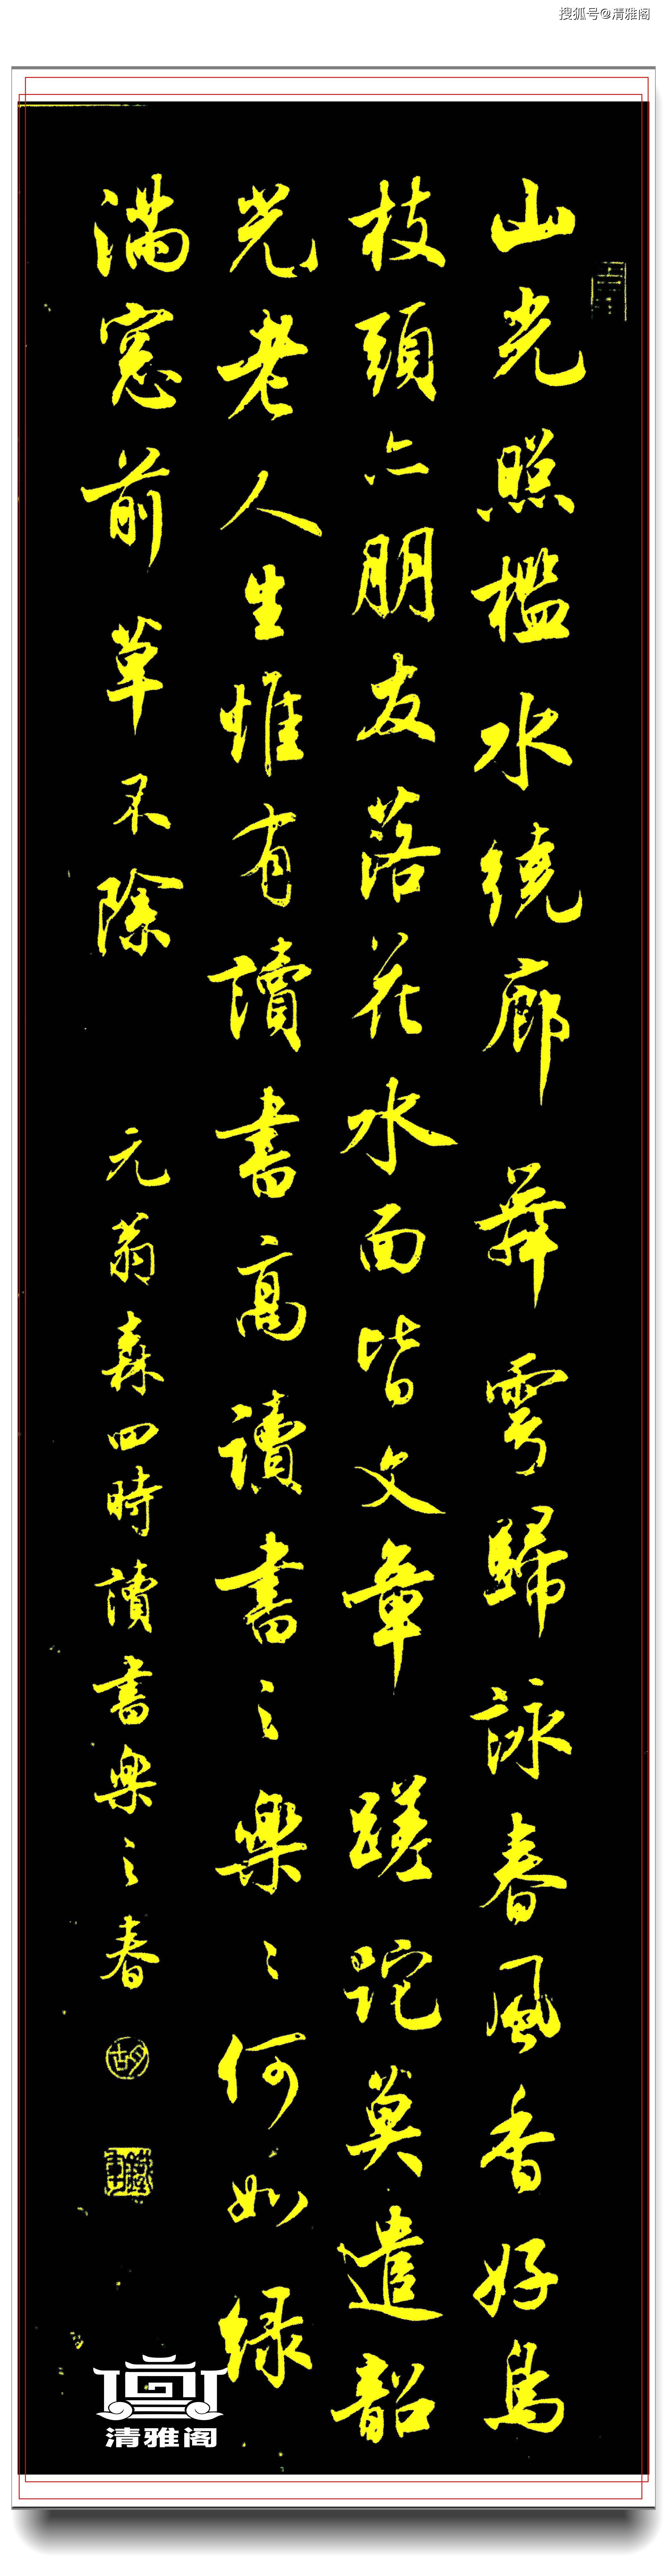 搜狐号@清雅阁
山光照檻水繞廊舞雩歸詠春風香好鳥
枝頭亦朋友落花水面皆文章蹉跎莫遣韶
光老人生惟有讀書高讀書之樂〻何如綠
滿窓前草不除
元翁森四時讀書樂之春
胡
清雅阁